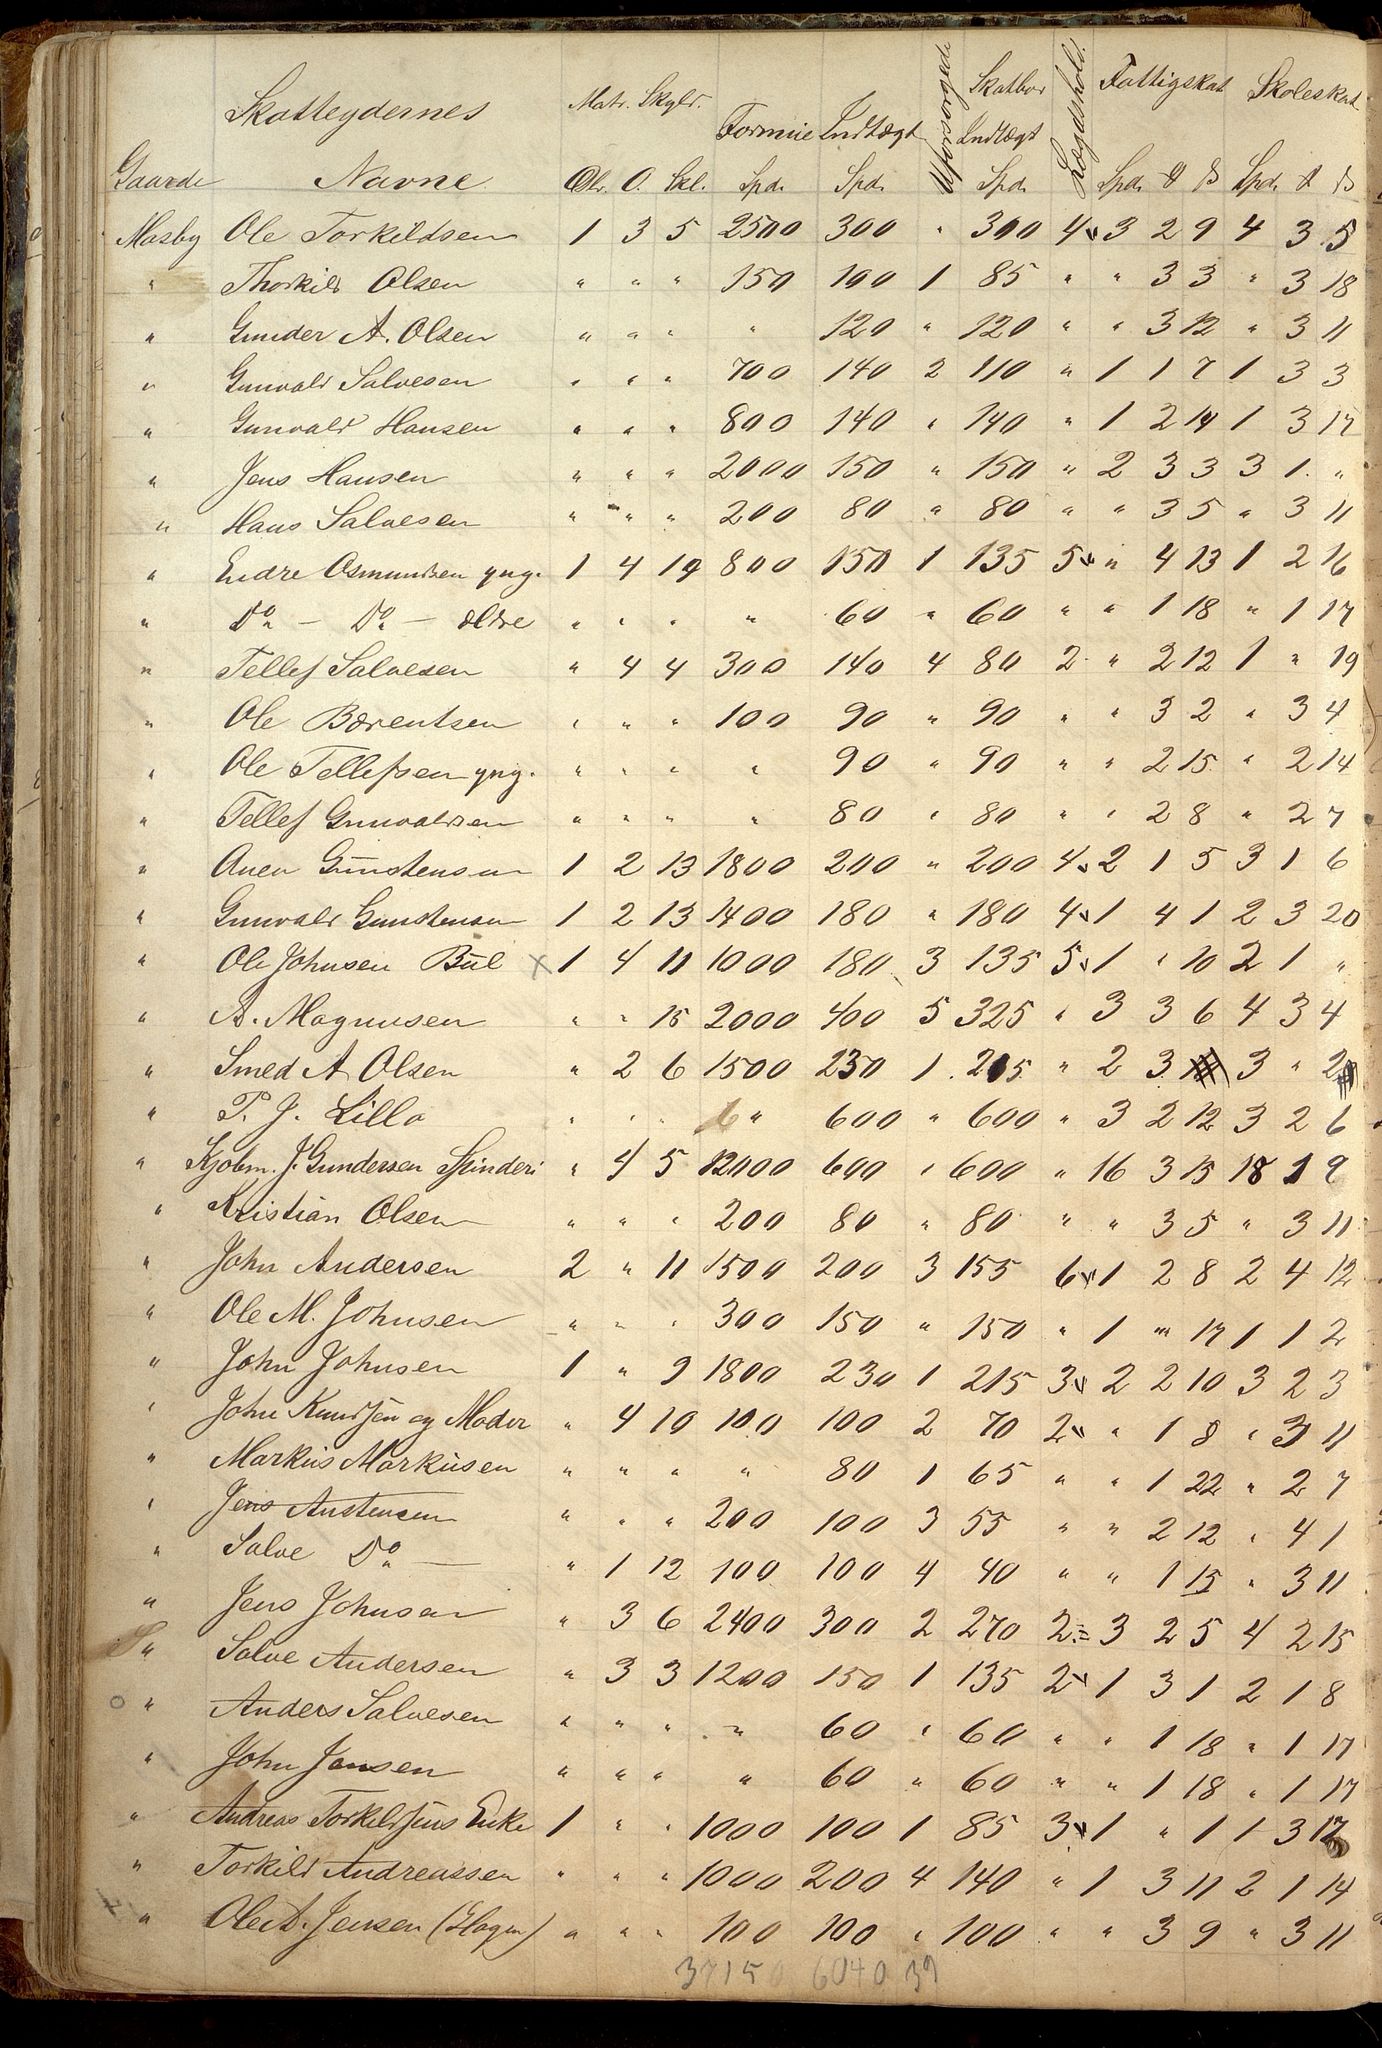 Skatteydernes Matr. Skyld. Formue Indtægt Uforsørgede Skatbar Indtægt Lægdshold. Fattigskat Skoleskat
Gaarde Navne. Dlr. O. Skl. Spd. Spd. Spd. Spd. ß Spd. ß
Mosby Ole Torkildsen 1 3 5 2500 300 " 300 4 3 2 9 4 3 5
" Thorkild Olsen " " " 150 100 1 85 " " 3 3 " 3 18
" Gunder A. Olsen " " " " 120 " 120 " " 3 12 " 3 11
" Gunvald Salvesen " " " 700 140 2 110 " 1 1 7 1 3 3
" Gunvald Hansen " " " 800 140 " 140 " 1 2 14 1 3 17
" Jens Hansen " " " 2000 150 " 150 " 2 3 3 3 1 "
" Hans Salvesen " " " 200 80 " 80 " " 3 5 " 3 11
" Endre Osmundsen yng. 1 4 19 800 150 1 135 5 " 4 13 1 2 16
" Do — Do — ældre " " " " 60 " 60 " " 1 18 " 1 17
" Tellef Salvesen " 4 4 300 140 4 80 2 " 2 12 1 " 19
" Ole Bærentsen " " " 100 90 " 90 " " 3 2 " 3 4
" Ole Tellefsen yng. " " " " 90 " 90 " " 2 15 " 2 14
" Tellef Gunvaldsen " " " " 80 " 80 " " 2 8 " 2 7
" Anen Gunstensen 1 2 13 1800 200 " 200 4 2 1 5 3 1 6
" Gunvald Gunstensen 1 2 13 1400 180 " 180 4 1 4 1 2 3 20
" Ole Johnsen Bül x 1 4 11 1000 180 3 135 5 1 " 10 2 1 "
" A. Magnusen " " 15 2000 400 5 325 " 3 3 6 4 3 4
" Smed A Olsen " 2 6 1500 230 1 215 " 2 3 3 " 2
" P. J. Lilla " " " " 600 " 600 " 3 2 12 3 2 6
" Kjøbm. J. Gundersen Spinderi " 4 5 12000 600 " 600 " 16 3 15 18 1 9
" Kristian Olsen " " " 200 80 " 80 " " 3 5 " 3 11
" John Andersen 2 " 11 1500 200 3 155 6 1 2 8 2 4 12
" Ole M. Johnsen " " " 300 150 " 150 " 1 " 17 1 1 2
" John Johnsen 1 " 9 1800 230 1 215 3 2 2 10 3 2 3
" John Knudsen og Moder " 4 10 100 100 2 70 2 " 1 8 " 3 11
" Markus Markusen " " " " 80 1 65 " " 1 22 " 2 7
" Jens Austensen " " " 200 100 3 55 " " 2 12 " 4 1
" Salve Do — " 1 12 100 100 4 40 " " 1 15 " 3 11
" Jens Johnsen " 3 6 2400 300 2 270 2 3 2 5 4 2 15
" Salve Andersen " 3 3 1200 150 1 135 2 1 3 1 2 1 8
o " Anders Salvesen " " " " 60 " 60 " " 1 18 " 1 17
" John Jansen " " " " 60 " 60 " " 1 18 " 1 17
" Andreas Torkildsens Enke 1 " " 1000 100 1 85 3 1 " 1 1 3 17
" Torkild Andreassen " " " 1000 200 4 140 " 1 3 11 2 1 14
" Ole A. Jensen " " " 100 100 " 100 " " 3 9 " 3 11
37150 6040 37